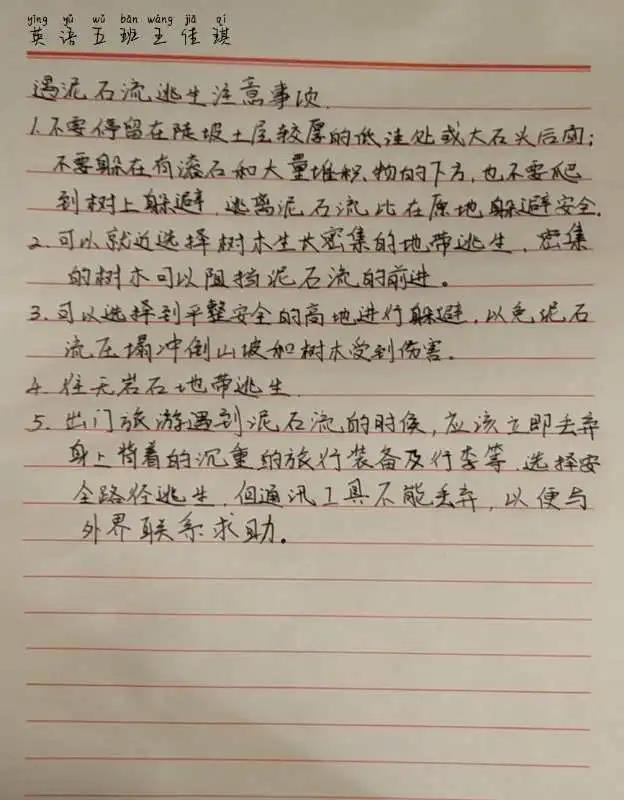 yīng yǔ wǔ bān wáng jiā qí
英语五班王佳琪
遇泥石流逃生注意事项.
1.不要停留在陡坡土层较厚的低洼处或大石头后面;
不要躲在有滚石和大量堆积物的下方,也不要爬
到树上躲避,逃离泥石流比在原地躲避安全.
2.可以就近选择树木生长密集的地带逃生,密集
的树木可以阻挡泥石流的前进。
3.可以选择到平整安全的高地进行躲避,以免泥石
流压塌冲倒山坡和树木受到伤害。
4.往无岩石地带逃生.
5.出门旅游遇到泥石流的时候,应该立即丢弃
身上背着的沉重的旅行装备及行李等,选择安
全路径逃生,但通讯工具不能丢弃,以便与
外界联系求助。